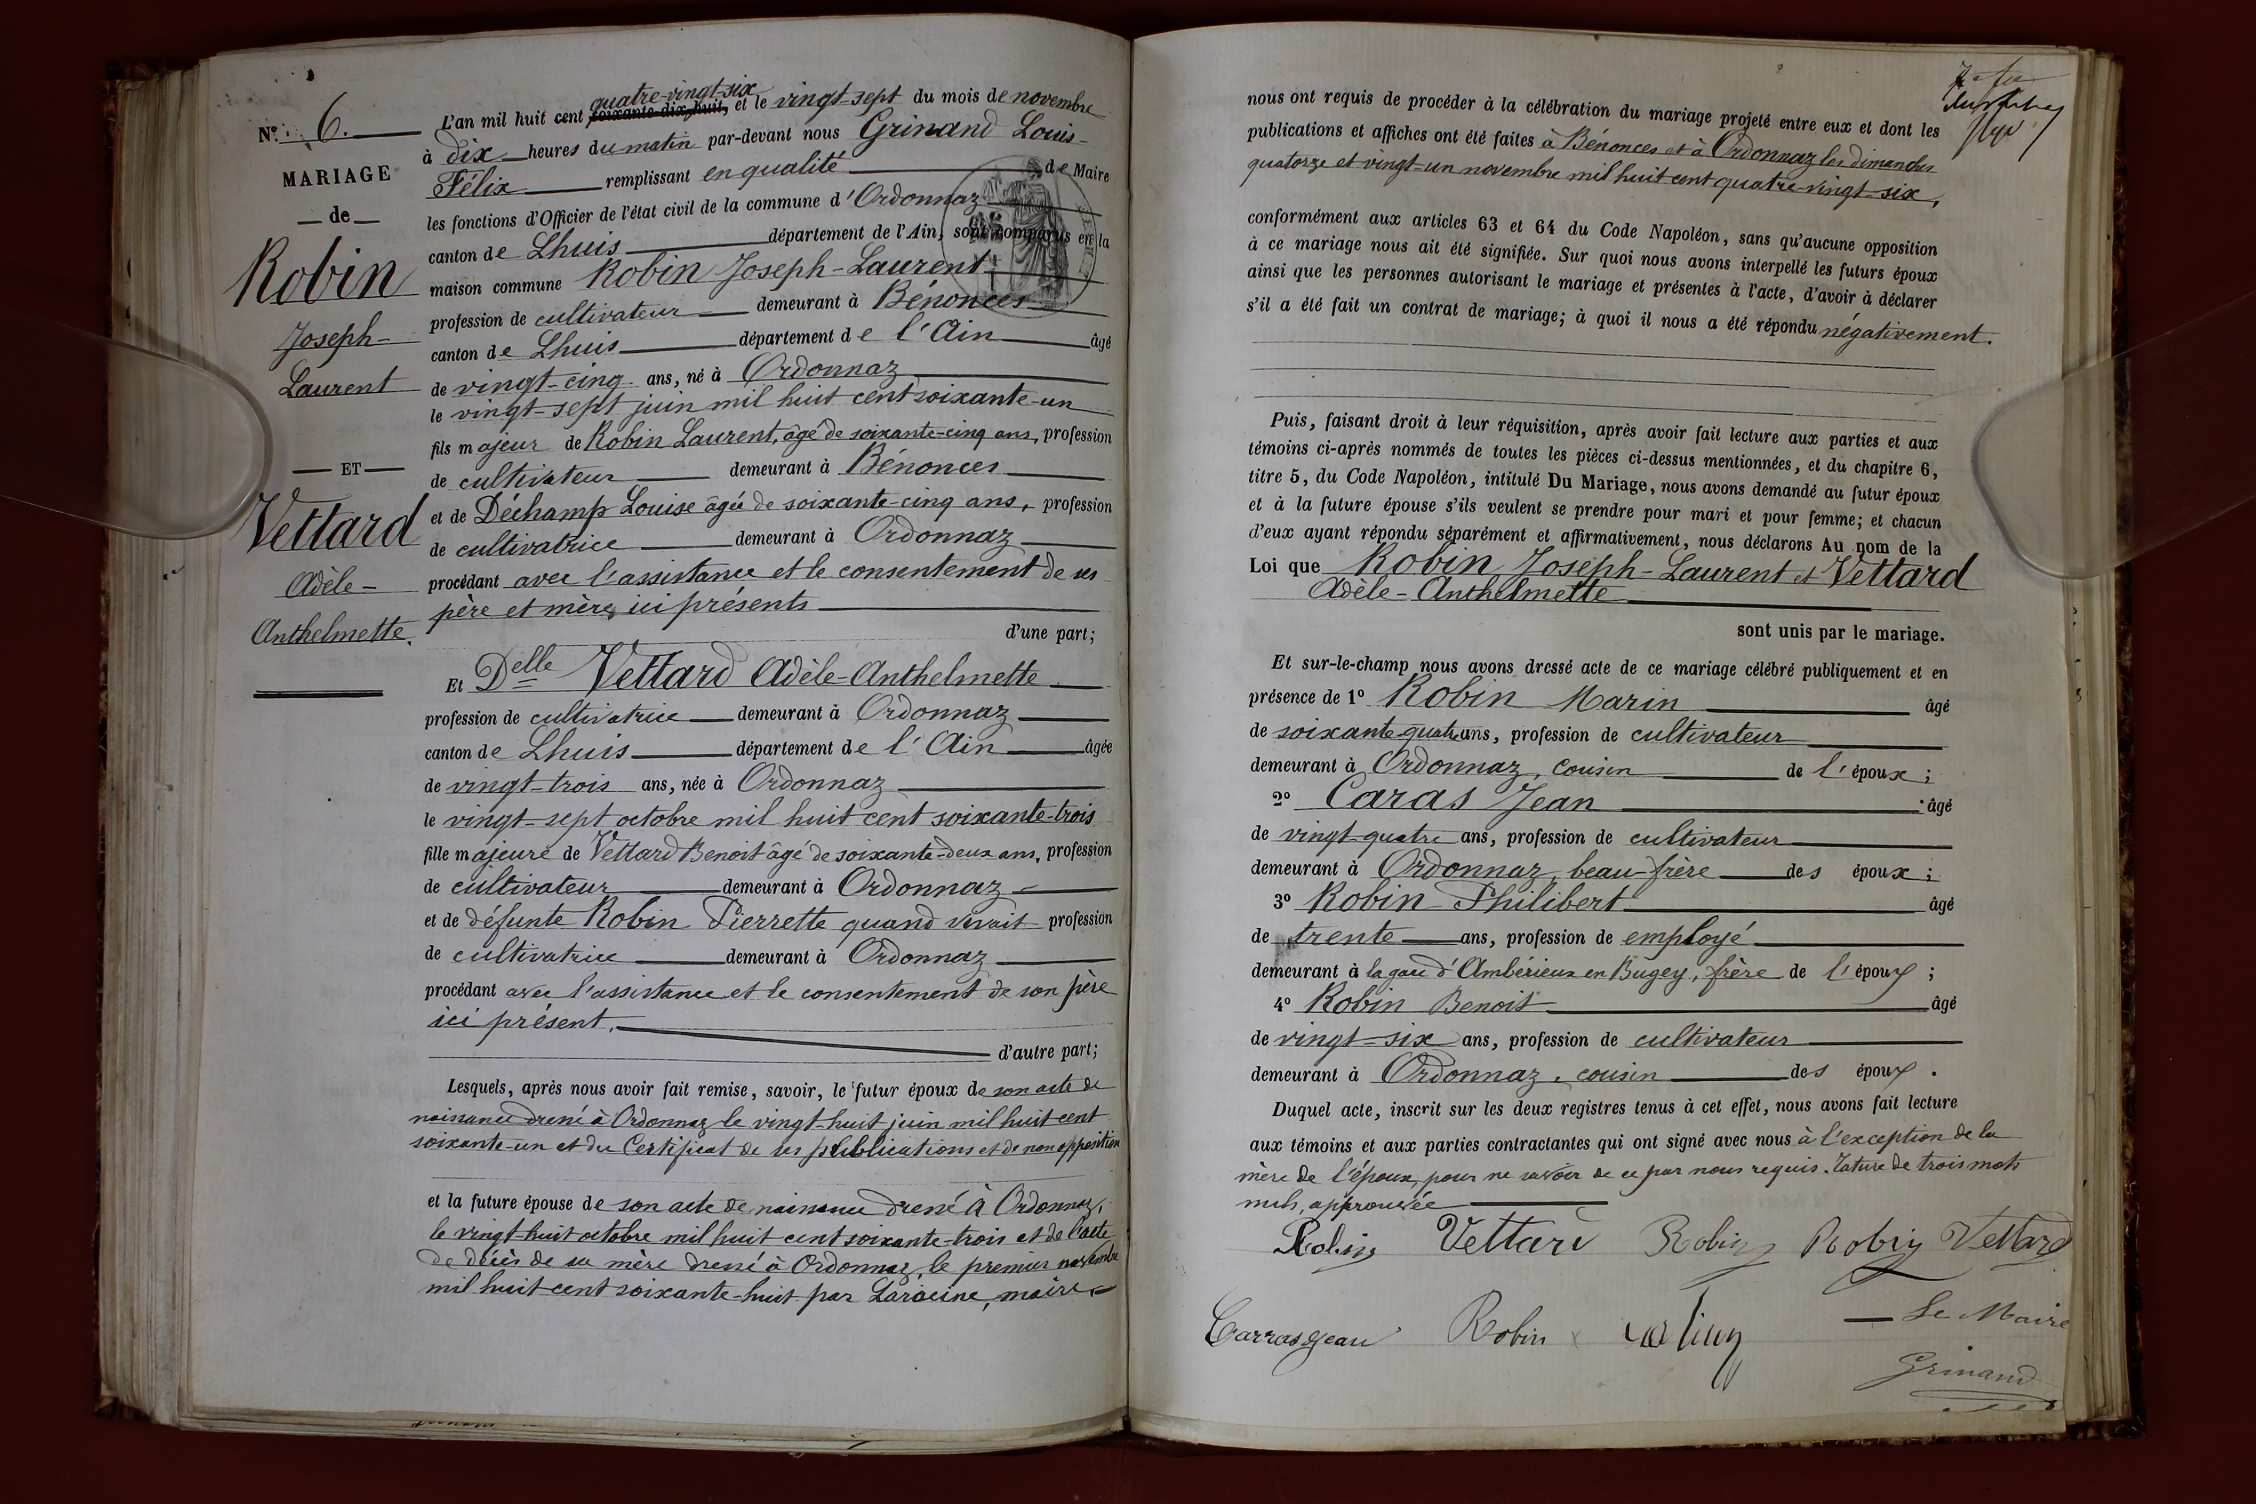 N° 6.
MARIAGE
de
Robin
Joseph-
Laurent
ET
Vettard
Adèle-
Anthelmette.
quatre-vingt-six
L'an mil huit cent soixante-dix-huit, et le vingt-sept du mois de novembre
à dix heures du matin par-devant nous Grinand Louis-
Félix remplissant en qualité de Maire
les fonctions d'Officier de l'état civil de la commune d'Ordonnaz
canton de Lhuis département de l'Ain, sont comparus en la
maison commune Robin Joseph-Laurent
profession de cultivateur demeurant à Bénonces
canton de Lhuis département de l'Ain âgé
de vingt-cinq ans, né à Ordonnaz
le vingt-sept juin mil huit cent soixante-un
fils majeur de Robin Laurent, âgé de soixante-cinq ans, profession
de cultivateur demeurant à Bénonces
et de Déchamp Louise âgée de soixante-cinq ans, profession
de cultivatrice demeurant à Ordonnaz
procédant avec l'assistance et le consentement de ses
père et mère, ici présents
d'une part;
Et Delle Vettard Adèle-Anthelmette
profession de cultivatrice demeurant à Ordonnaz
canton de Lhuis département de l'Ain âgée
de vingt-trois ans, née à Ordonnaz
le vingt-sept octobre mil huit cent soixante-trois
fille majeure de Vettard Benoit âgé de soixante-deux ans, profession
de cultivateur demeurant à Ordonnaz
et de défunte Robin Pierrette quand vivait profession
de cultivatrice demeurant à Ordonnaz
procédant avec l'assistance et le consentement de son père
ici présent.
d'autre part;
Lesquels, après nous avoir fait remise, savoir, le futur époux de son acte de
naissance dressé à Ordonnaz le vingt-huit juin mil huit cent
soixante-un et du Certificat de ses publications et de non opposition
et la future épouse de son acte de naissance dressé à Ordonnaz,
le vingt-huit octobre mil huit cent soixante-trois et de l'acte
de décès de sa mère dressé à Ordonnaz, le premier novembre
mil huit cent soixante-huit par Laracine, maire
nous ont requis de procéder à la célébration du mariage projeté entre eux et dont les
publications et affiches ont été faites à Bénonces et à Ordonnaz les dimanches
quatorze et vingt-un novembre mil huit cent quatre-vingt-six,
conformément aux articles 63 et 64 du Code Napoléon, sans qu'aucune opposition
à ce mariage nous ait été signifiée. Sur quoi nous avons interpellé les futurs époux
ainsi que les personnes autorisant le mariage et présentes à l'acte, d'avoir à déclarer
s'il a été fait un contrat de mariage; à quoi il nous a été répondu négativement.
Puis, faisant droit à leur réquisition, après avoir fait lecture aux parties et aux
témoins ci-après nommés de toutes les pièces ci-dessus mentionnées, et du chapitre 6,
titre 5, du Code Napoléon, intitulé Du Mariage, nous avons demandé au futur époux
et à la future épouse s'ils veulent se prendre pour mari et pour femme; et chacun
d'eux ayant répondu séparément et affirmativement, nous déclarons Au nom de la
Loi que Robin Joseph-Laurent et Vettard
Adèle-Anthelmette
sont unis par le mariage.
Et sur-le-champ nous avons dressé acte de ce mariage célébré publiquement et en
présence de 1° Robin Marin âgé
de soixante-quatre ans, profession de cultivateur
demeurant à Ordonnaz, cousin de l'époux;
2° Caras Jean âgé
de vingt-quatre ans, profession de cultivateur
demeurant à Ordonnaz, beau-frère des époux;
3° Robin Philibert âgé
de trente ans, profession de employé
demeurant à la gare d'Ambérieux en Bugey, frère de l'époux;
4° Robin Benoit âgé
de vingt-six ans, profession de cultivateur
demeurant à Ordonnaz, cousin des époux.
Duquel acte, inscrit sur les deux registres tenus à cet effet, nous avons fait lecture
aux témoins et aux parties contractantes qui ont signé avec nous à l'exception de la
mère de l'époux, pour ne savoir de ce par nous requis. Rature de trois mots
nuls, approuvée
Robin Vettard Robin Robin Vettard
Carras Jean Robin
Le Maire
Grinand